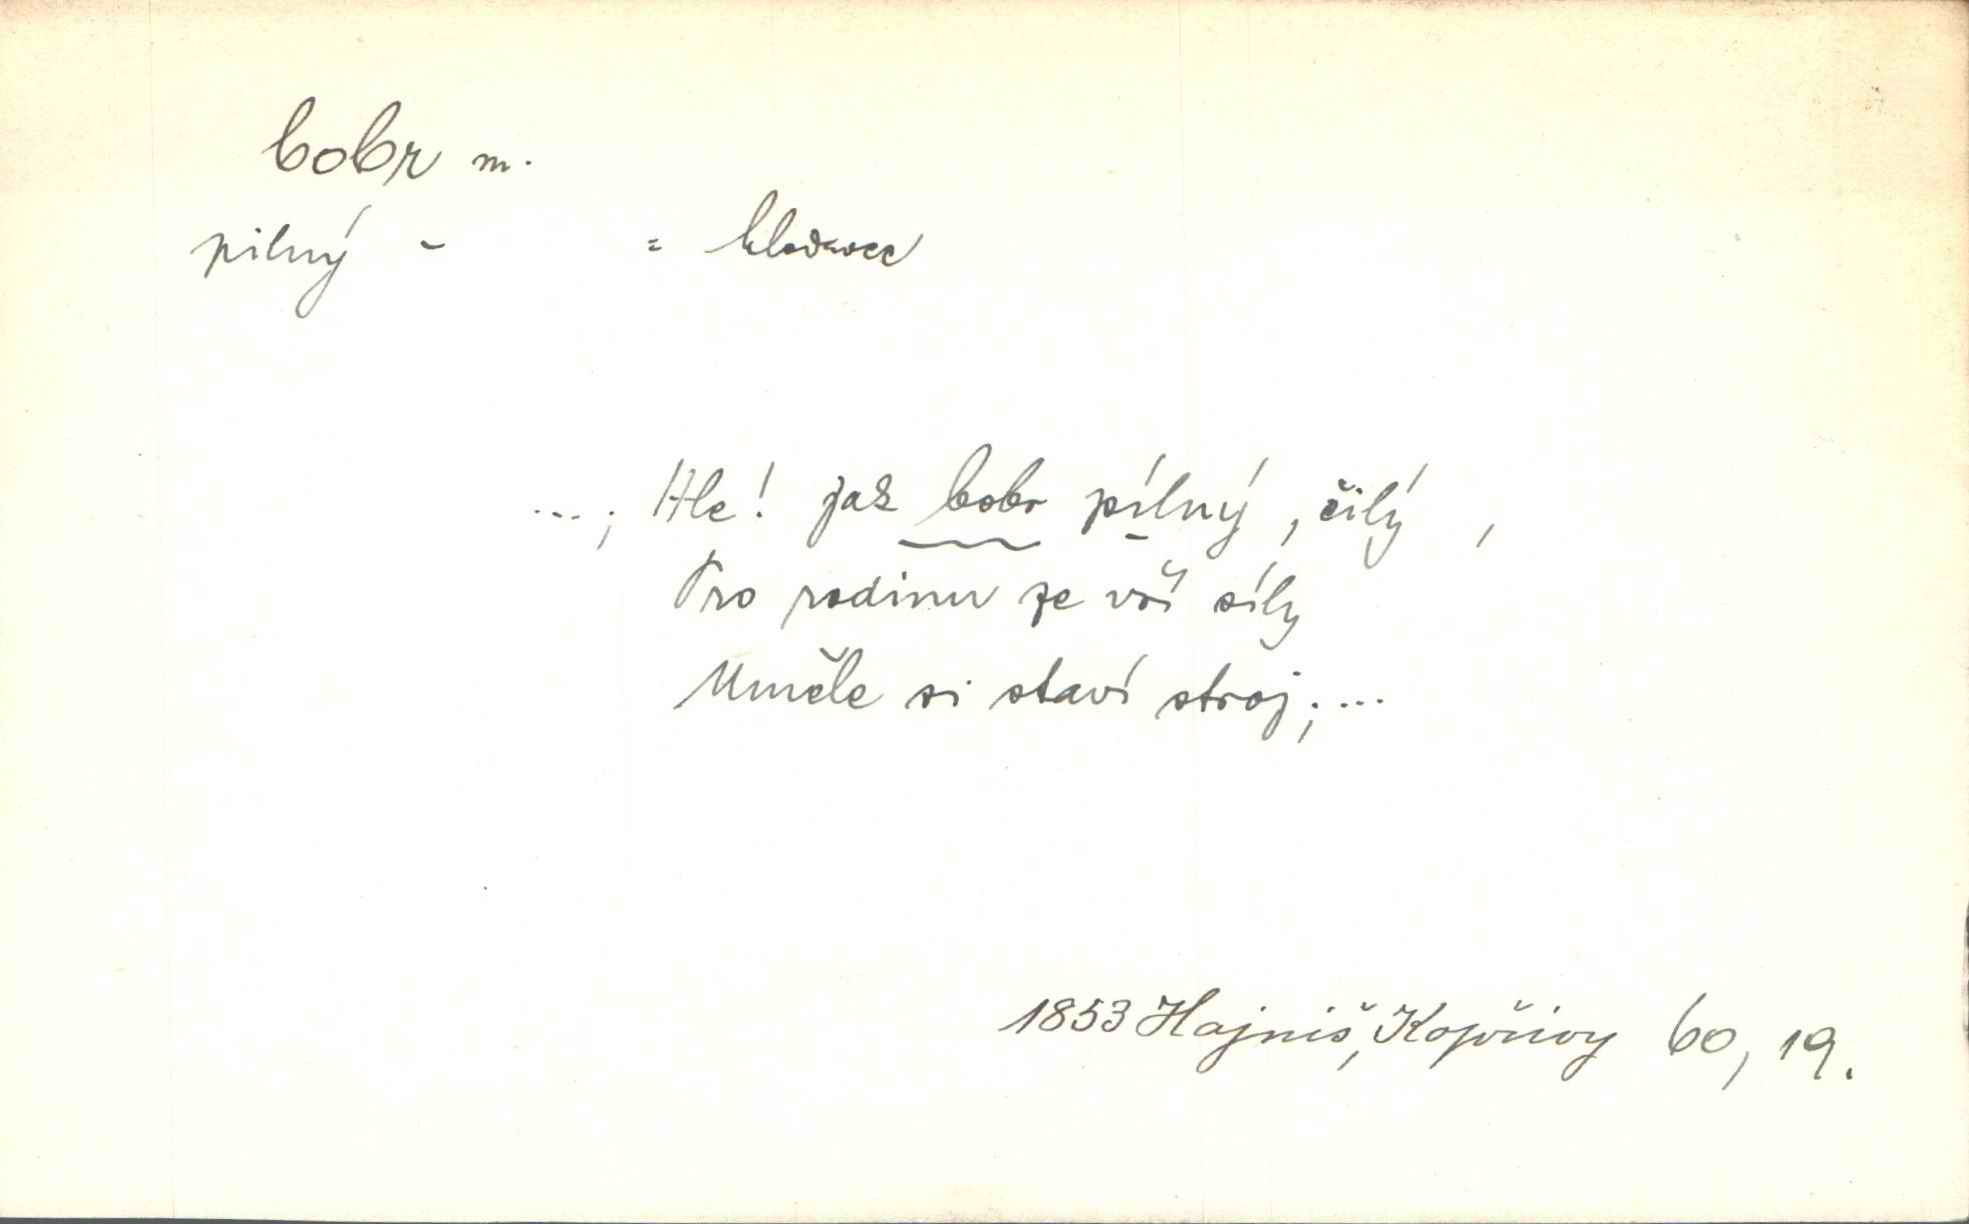 bobr m.
pilný - = hlodavec
...; Hle! jak bobr pílný, čilý,
Pro rodinu ze vší síly
Uměle si staví stroj; ...
1853 Hajniš, Kopřivy 60, 19.